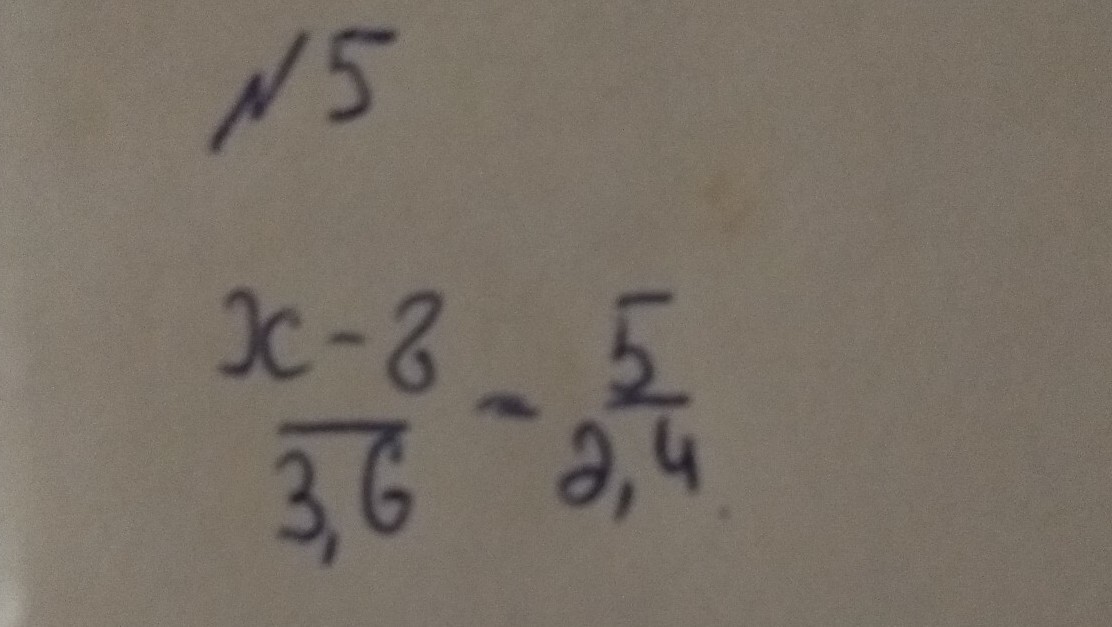 №5
x-8
3,6 - 5
2,4